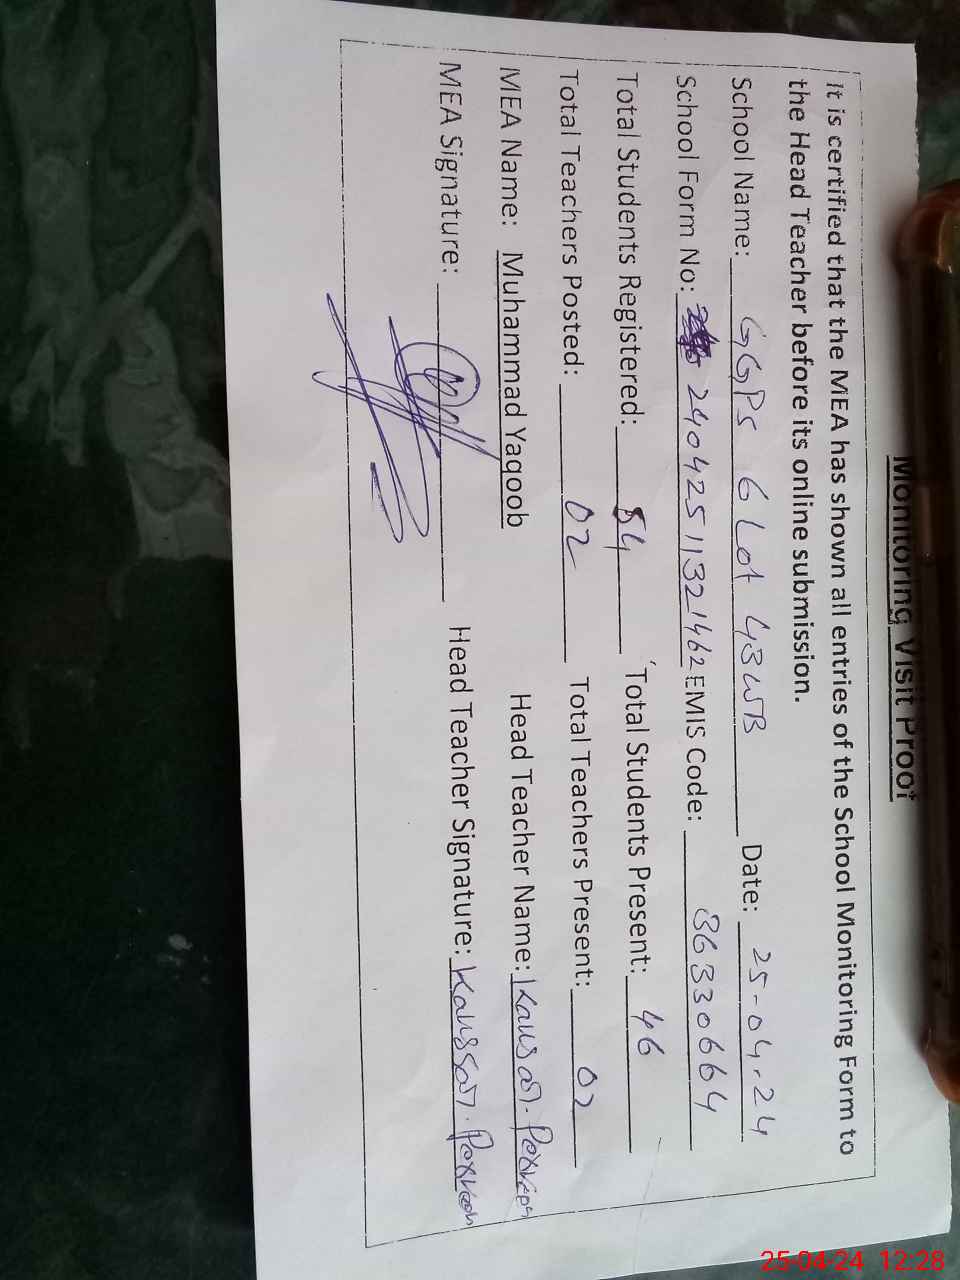 Monitoring Visit Proof
It is certified that the MEA has shown all entries of the School Monitoring Form to
the Head Teacher before its online submission.
School Name: GGPS 6 Lot 43WB Date: 25-04-24
School Form No: 24042511321462 EMIS Code: 36330664
Total Students Registered: 54 Total Students Present: 46
Total Teachers Posted: 02 Total Teachers Present: 02
MEA Name: Muhammad Yaqoob Head Teacher Name: Kausar Perveen
MEA Signature: Head Teacher Signature: Kaussar Perveen
25-04-24 12:28